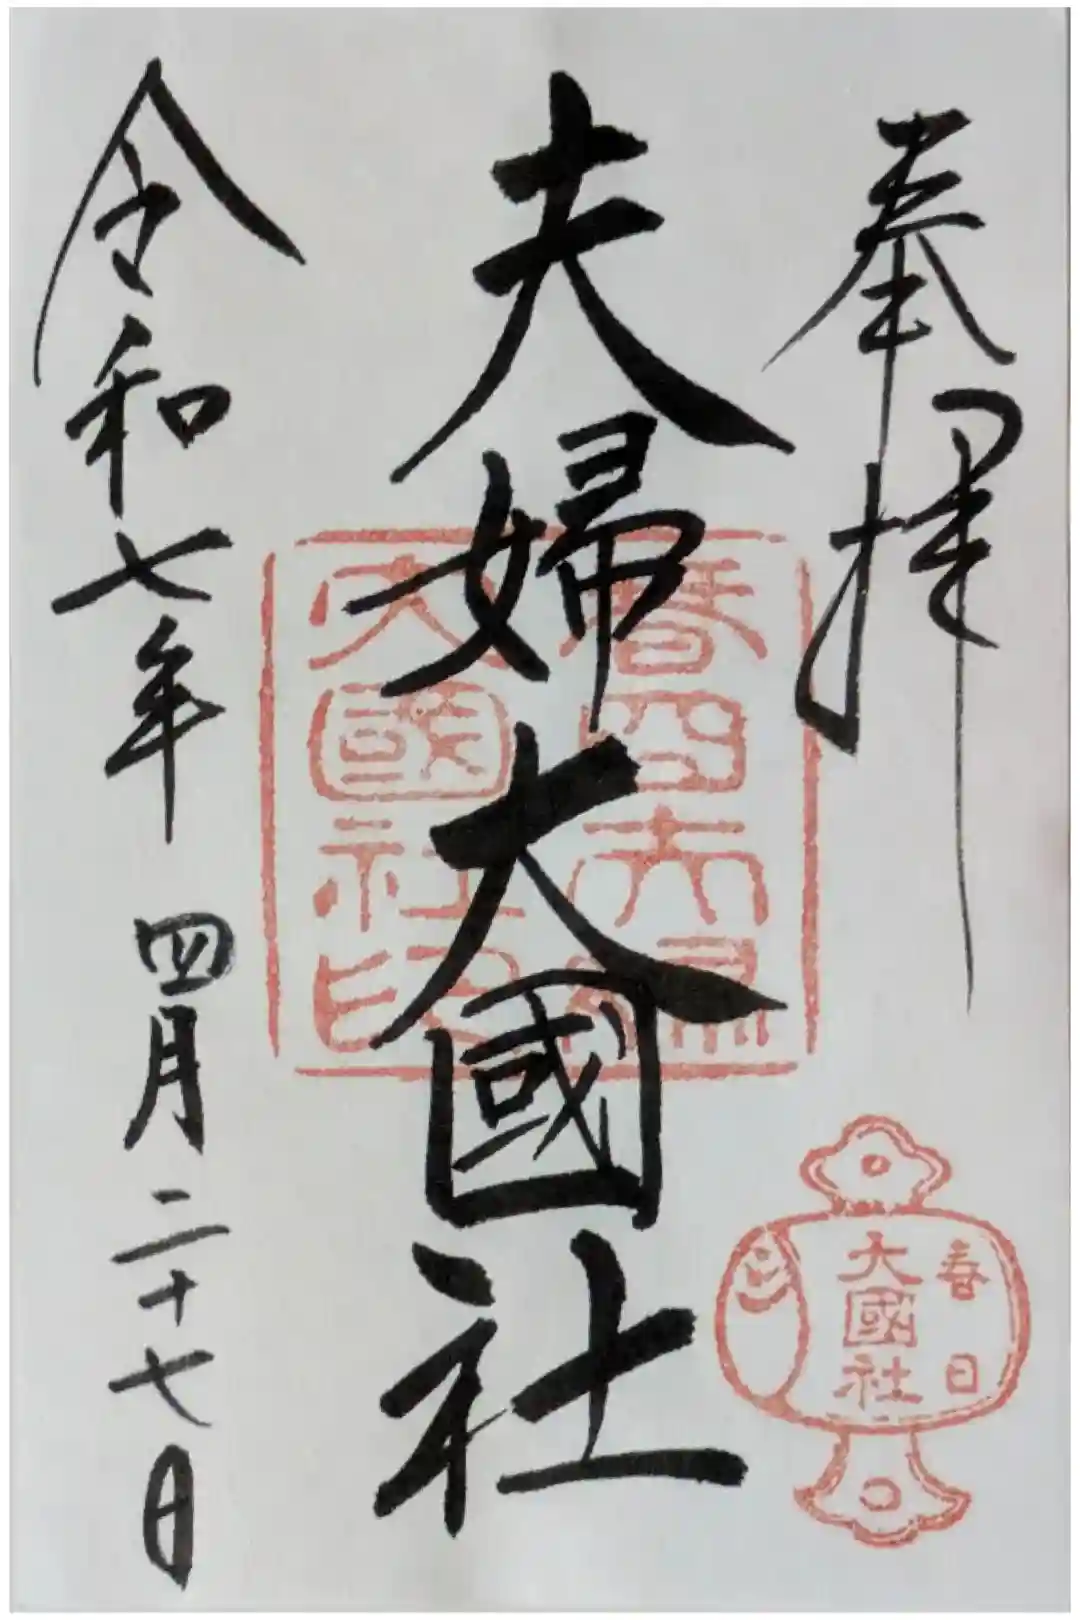 奉拝
夫婦大國社
令和七年 四月二十七日
春日
大國社
大國社印